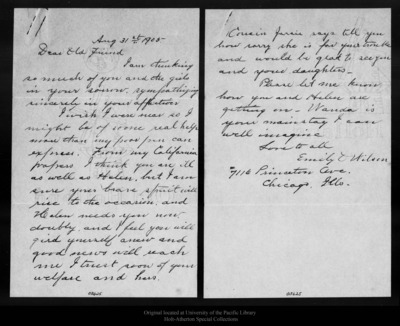 Aug 31st 1905
Dear Old Friend
I am thinking
so much of you and the girls
in your sorrow, sympathizing
sincerely in your affliction
I wish I were near so I
might be of some real help
more than my poor pen can
express. From my California
papers I think you are ill
as well as Helen, but I am
sure your brave spirit will
rise to the occasion, and
Helen needs you now
doubly, and I feel you will
gird yourself anew and
good news will reach
me I trust soon of your
welfare and hers.
Cousin says tell you
how sorry she is for your trouble
and would be glad to see you
and your daughters.
Please let me know
how you and Helen are
getting on. Wanda is
your mainstay I can
well imagine
Love to all
Emily C Wilson.
7116 Princeton Ave.
Chicago, Ills.
Original located at University of the Pacific Library
Holt-Atherton Special Collections